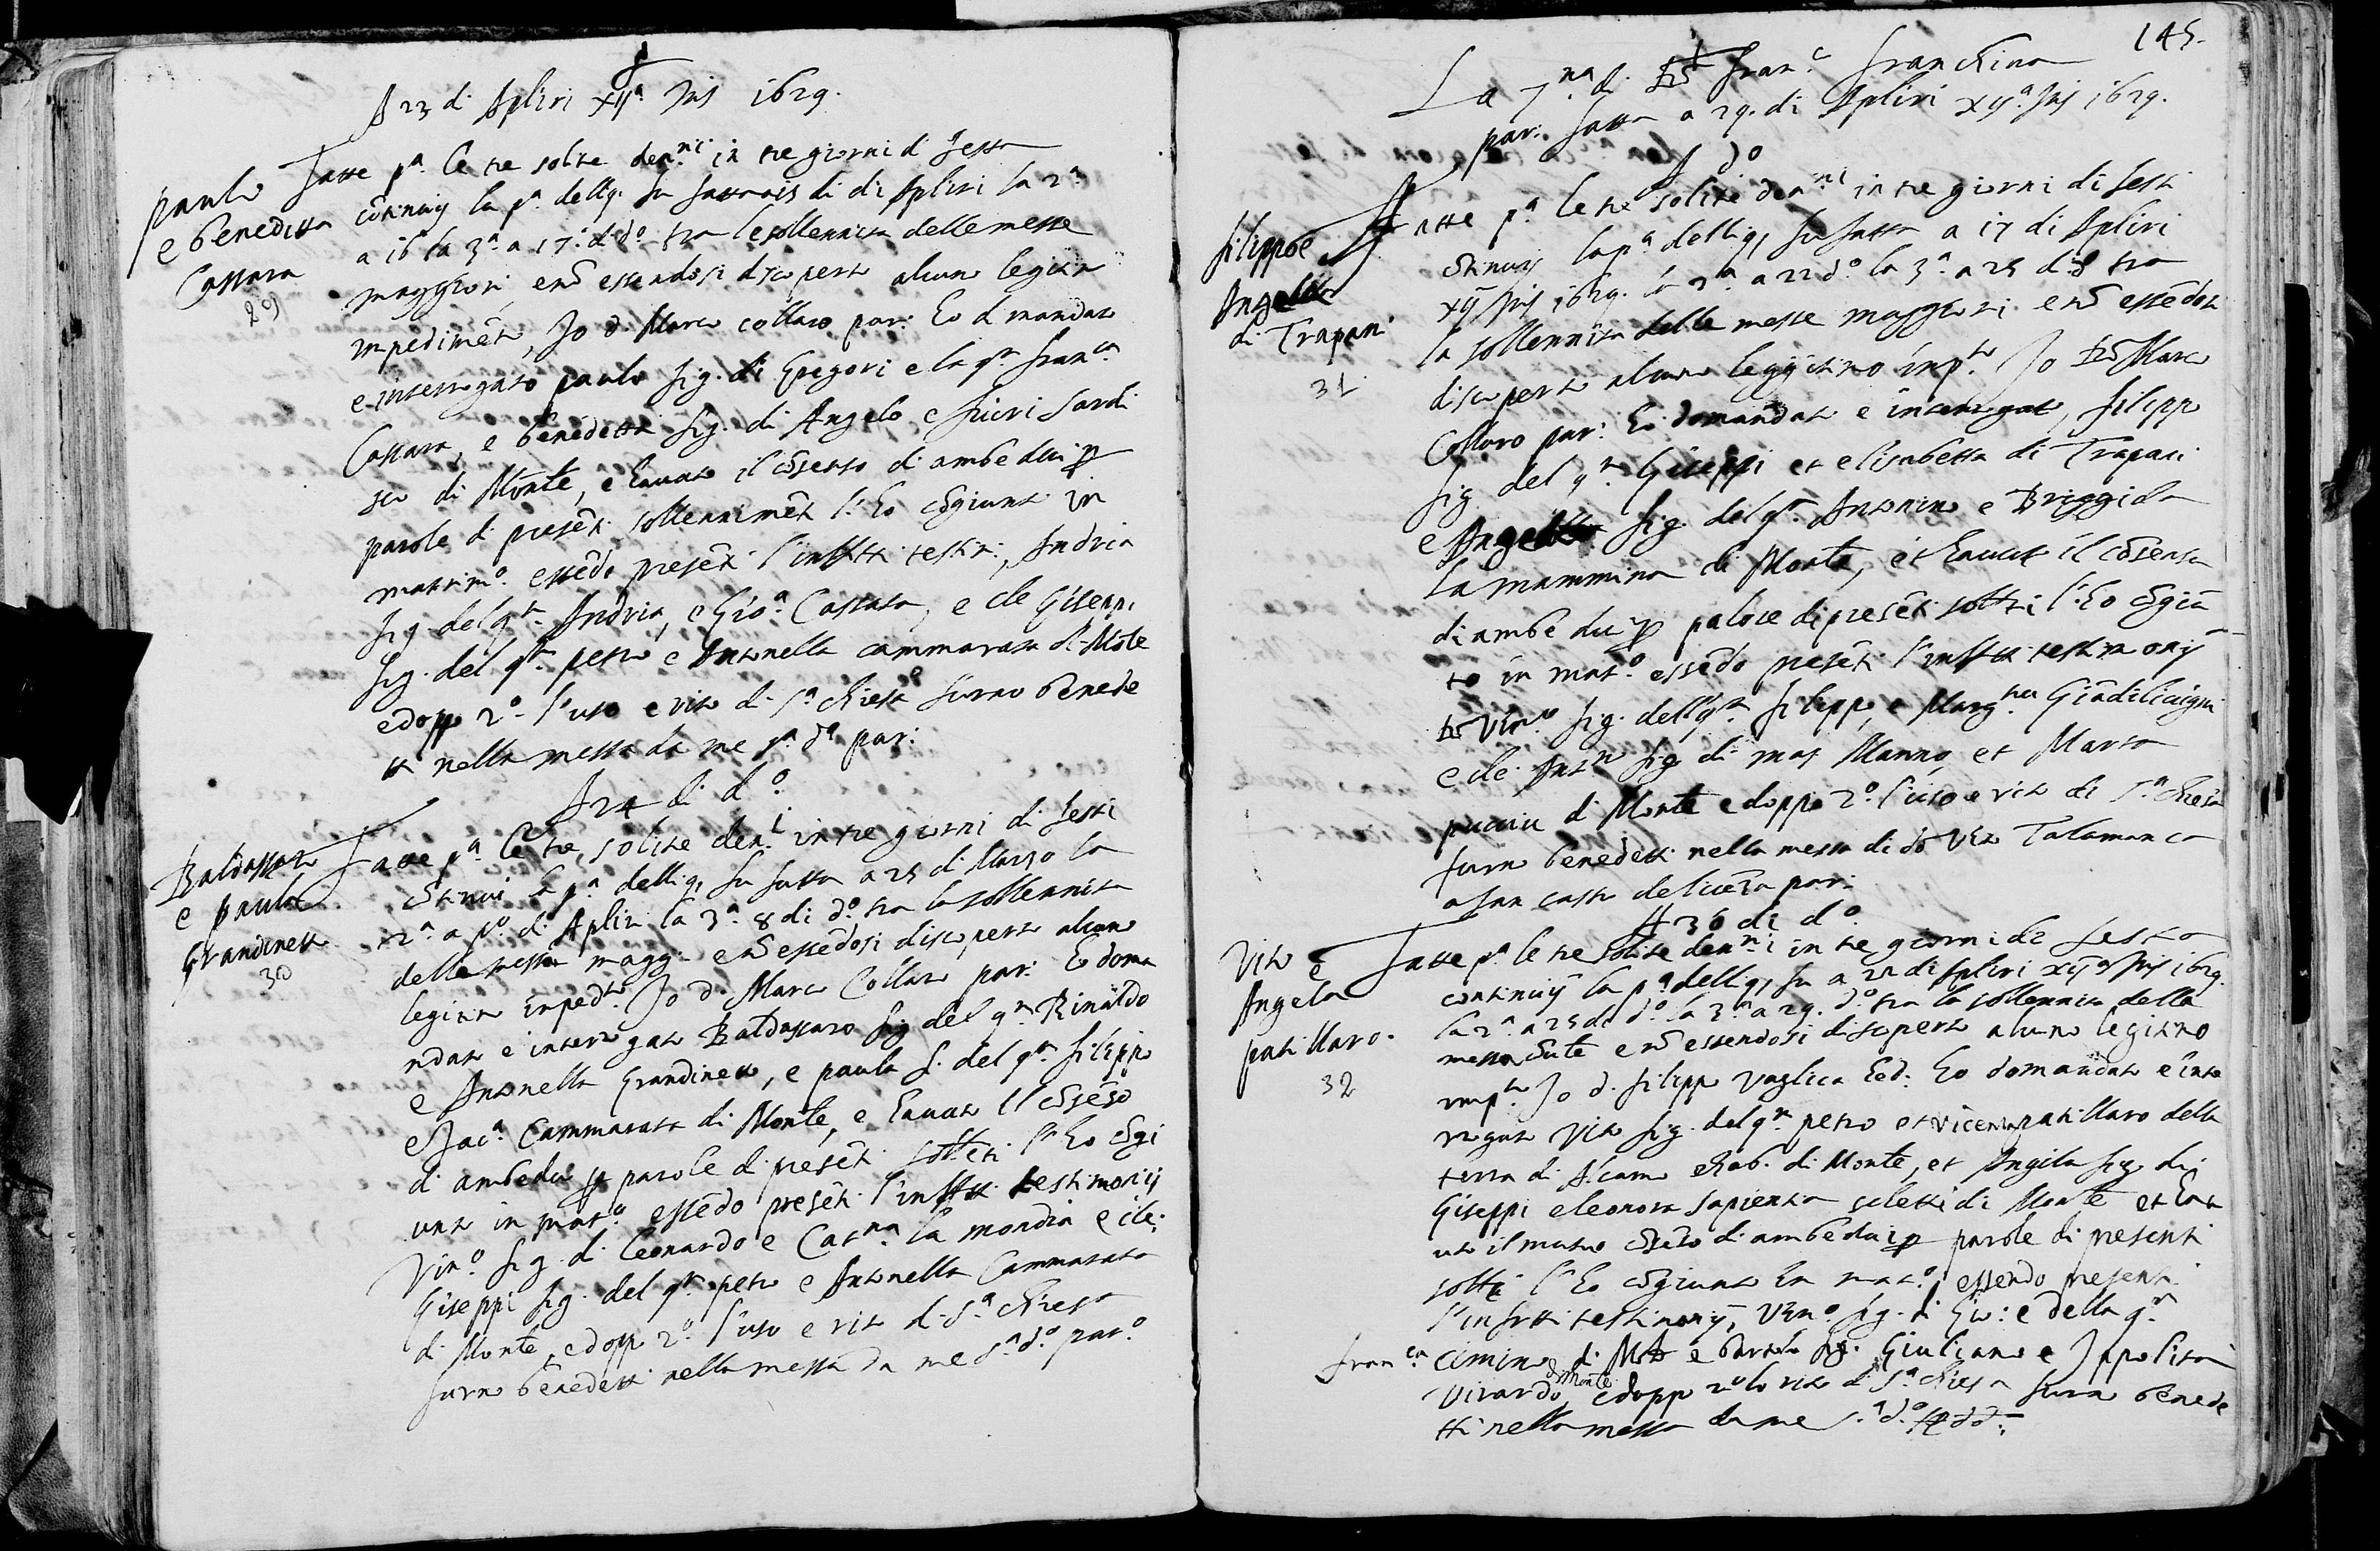 A 23 di Apliri xijª Ind 1629.
paulo
e beneditta
Cassara
29
Fatte pª le tre solite denni in tre giorni di festa
cõtinuij la pª delliq. fu fatta a 15 di di Apliri la 2ª
a 16 la 3ª a 17. di dº tra le sollennita delle messe
maggiori, e nõ essendosi discuperto alcuno legitimo
impedimẽto, Io d. Marco collaro par: ho dimandato
e interrogato paulo fig. di Gregori e la qm franca
Cassara, e benedetta fig. di Angelo e
di Monte, e havuto il cõsenso di ambedui p
parole di presẽti sollennimẽte l'ho cõgiunto in
matrimº. essẽdo presẽti l'infrti testi:, Andria
fig. del qm Andria, e Gioª Cassata, e cle Giseppi
fig. del qm petro e Antonella cammarata di Mõte
e doppo 2º l'uso e rito di Sª chiesa furno benede
tti nella messa da me sª dº par:
A 24 di dº
Baldassaro
e paula
Grandinetto
30
Fatte pª le tre solite deni in tre giorni di festi
cõtinui la pª delliq, fu fatta a 25 di Marzo la
2ª a pº di Aplili la 3ª 8 di dº tra la sollennita
della messa magg: e nõ essẽdosi discuperto alcuno
legitimo impedto Io D. Marco Collaro par: ho doma
ndato e interrogato Baldassaro fig. del qm Rinaldo
e Antonella Grandinetto, e paula f. del qm filippo
e Jacª Cammarata di Monte, e havuto il cõsẽso
di ambedui p parole di presẽti l'ho cõgi
unto in matº essẽdo presẽti l'infrti testimonij
Vinº fig. di Leonardo e Catna la mondia e cle:
Giseppi fig. del qm petro e Antonella Cammarata
di Monte, e dopp 2º l'uso e rito di Sª chiesa
furno benedetti nella messa da me sª dº parº
145.
La 7na di franc franchina
par: fatta a 29. di Apliri xijª Ind 1629.
A dº
filippo e
Angela
di Trapani
31
Fatte pª le tre solite denni in tre giorni di festi
cõtinuij la pª delliq, fu fatta a 17 di Apliri
xij Ind 1629. la 2ª a 22 dº la 3ª a 25 di dº tra
la sollennita delle messe maggiori e nõ essẽdosi
discuperto alcuno leggitimo impto Io Marco
Collaro par: ho domandato e interrogato, filippo
fig del qm Giseppi et elisabetta di Trapani
e Angela fig. del qm Antonino e Briggida
La mammina di Monte, et havuto il cõsenso
di ambedui p palore di presẽti l'ho cõgiũ
to in matº. essẽdo presẽti l'infrti testimonij
Vinco fig. dell qm filippo, e Margta
e cle. Antno fig. di mas Manno, et Marta
di Monte e doppo 2º l'uso e rito di Sª chiesa
furno benedetti nella messa di dõ Vito Talamanca
par:
A 30 di dº
Vito e
Angela
patillaro.
32
Fatte pª le tre solite denni in tre giorni di festa
continuij la pª delliq, fu a 22 di Apliri xijª Ind 1629.
la 2ª a 25 di dº la 3ª a 29. dº tra la sollennita della
messa e nõ essendosi discuperto alcuno legitimo
impto Io d. filippo Vaglica ho domandato e inte
rrogato Vito fig. del qm petro et Vicenza patillaro della
terra di Alcamo e hab. di Monte, et Angila fig di
Giseppi eleonora Sapienza di Monte et hav
uto il mutuo cõsẽso di ambedui p parole di presenti
l'ho cõgiunto in matº, essendo presenti
l'infrti testimonij, Vinº fig. di Gio: e della qm
franca Cimino di Mõte e fig. Giuliano e Ippolita
Virardo di Monte e dopp 2º lo rito di Sª chiesa furno benede
tti nella messa da me s.ª d.º